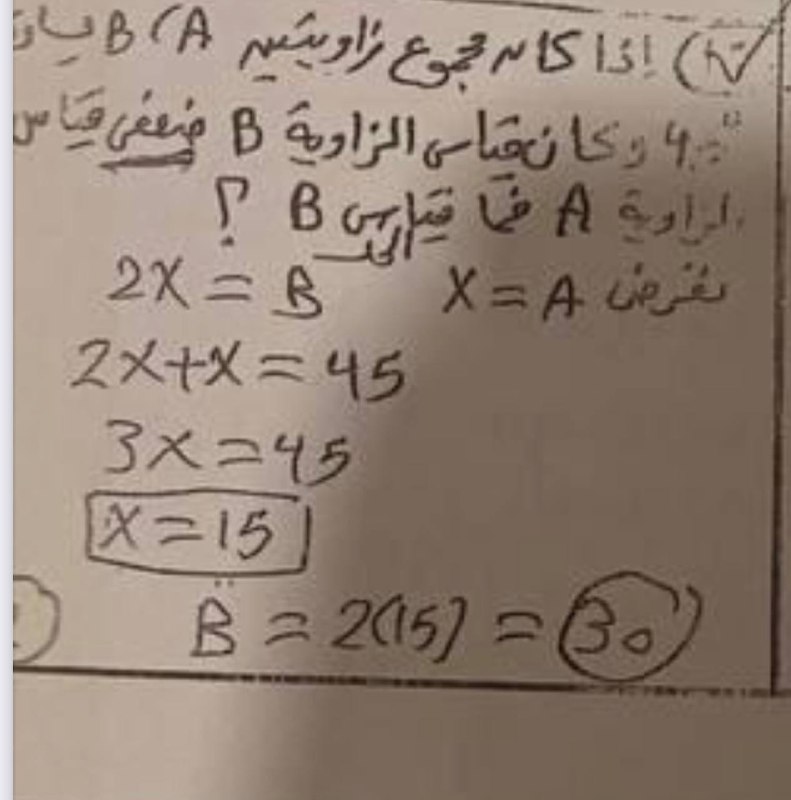 إذا كان مجموع زاويتين A، B
وكان قياس الزاوية B ضعفي قياس
الزاوية A فما قياس B ؟
الحل
نفرض X = A 2X = B
2X+X = 45
3X = 45
X = 15
B = 2(15) = 30